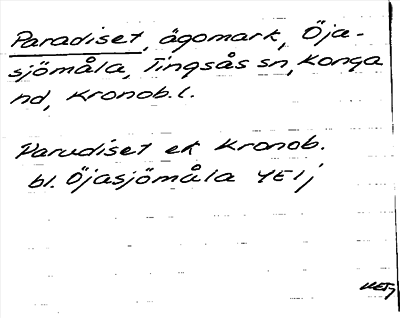 Paradiset, ägomark, Öja-
sjömåla, Tingsås sn, Konga
hd, Kronob. l.
Parudiset ek Kronob.
bl. Öjasjömåla 4E1j